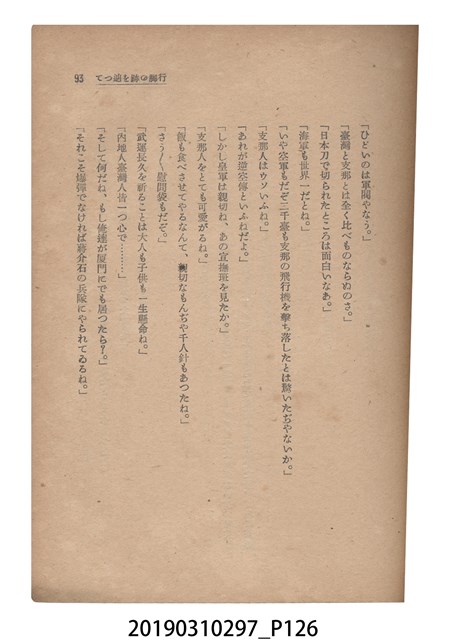 行脚の跡を追つて 93
「ひどいのは軍閥やなう。」
「臺灣と支那とは全く比べものならぬのさ。」
「日本刀で切られたところは面白いなあ。」
「海軍も世界一だとね。」
「いや空軍もだぞ二千臺も支那の飛行機を撃ち落したとは驚いたぢやないか。」
「支那人はウソいふね。」
「あれが逆宣傳といふねだよ。」
「しかし皇軍は親切ね、あの宣撫班を見たか。」
「支那人をとても可愛がるね。」
「飯も食べさせてやるなんて、親切なもんぢや千人針もあつたね。」
「さう〱慰問袋もだぞ。」
「武運長久を祈ることは大人も子供も一生懸命ね。」
「内地人臺灣人皆一つ心で………」
「そして何だね、もし俺達が厦門にでも居つたら?。」
「それこそ爆彈でなければ蔣介石の兵隊にやられてゐるね。」
20190310297_P126